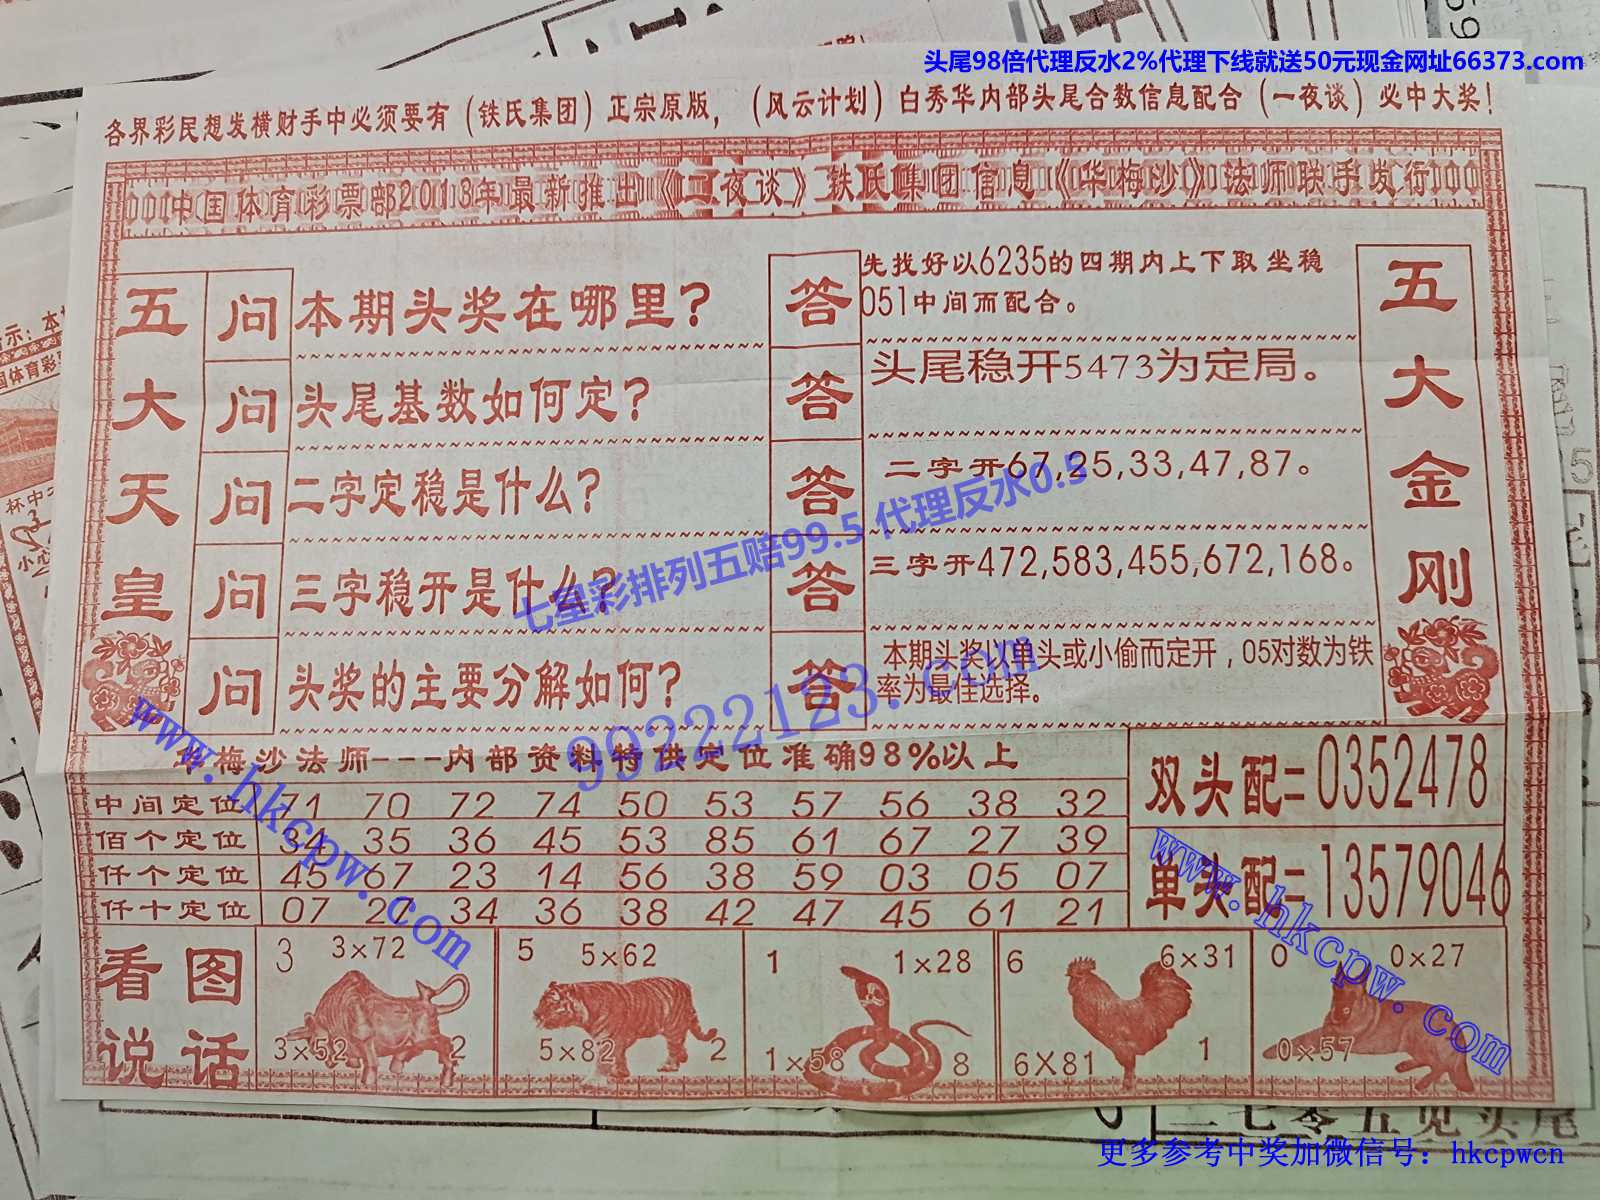 头尾98倍代理反水2%代理下线就送50元现金网址66373.com
各界彩民想发横财手中必须要有（铁氏集团）正宗原版，（风云计划）白秀华内部头尾合数信息配合（一夜谈）必中大奖！
中国体育彩票部2018年最新推出《一夜谈》铁氏集团信息《华梅沙》法师联手发行
五大天皇
问 本期头奖在哪里？
答 先找好以6235的四期内上下取坐稳
051中间而配合。
问 头尾基数如何定？
答 头尾稳开5473为定局。
问 二字定稳是什么？
答 二字开67,25,33,47,87。
问 三字稳开是什么？
答 三字开472,583,455,672,168。
问 头奖的主要分解如何？
答 本期头奖以单头或小偷而定开，05对数为铁
率为最佳选择。
五大金刚
七星彩排列五赔99.5 代理反水0.5
99222123.com
www.hkcpw.com
www.hkcpw.com
华梅沙法师---内部资料特供定位准确98%以上
中间定位 71 70 72 74 50 53 57 56 38 32
佰个定位 34 35 36 45 53 85 61 67 27 39
仟个定位 45 67 23 14 56 38 59 03 05 07
仟十定位 07 27 34 36 38 42 47 45 61 21
双头配二 0352478
单头配二 13579046
看图
说话
3 3×72
3×52 2
5 5×62
5×82 2
1 1×28
1×58 8
6 6×31
6×81 1
0 0×27
0×57
更多参考中奖加微信号：hkcpwcn